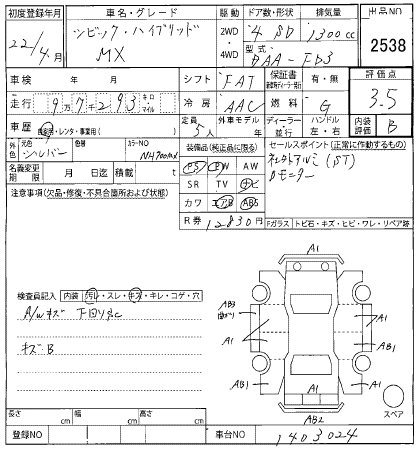 初度登録年月 車名・グレード 駆動 ドア数・形状 排気量 出品NO
22/4月 シビック・ハイブリッド MX 2WD・4WD 4 SD 1300cc 2538
型式 DAA-FD3
車検 年 月 シフト FAT 保証書 有・無 評価点
走行 97293 キロ マイル 冷房 AAC 燃料 G 3.5
車歴 自家用・レンタ・事業用( ) 定員 5人 外車モデル 年 ディーラー・並行 ハンドル 左・右 内装評価 B
外色 シルバー 色替 カラーNO NH700MX 装備品(純正品に限る) セールスポイント(正常に作動するもの)
名義変更期限 月 日迄 積載 t PS PW AW
注意事項(欠品・修復・不具合箇所および状態) SR TV ナビ Bモニター
カワ エアB ABS
R券 12830円
Fガラス トビ石・キズ・ヒビ・ワレ・リペア跡
A1
検査員記入 内装 汚レ・スレ・キズ・キレ・コゲ・穴 AB3 A1
A/wキズ 下回りサビ A1 AB1
キズB AB1 A1
AB2 スペア
長さ cm 幅 cm 高さ cm
登録NO 車台NO 1403024